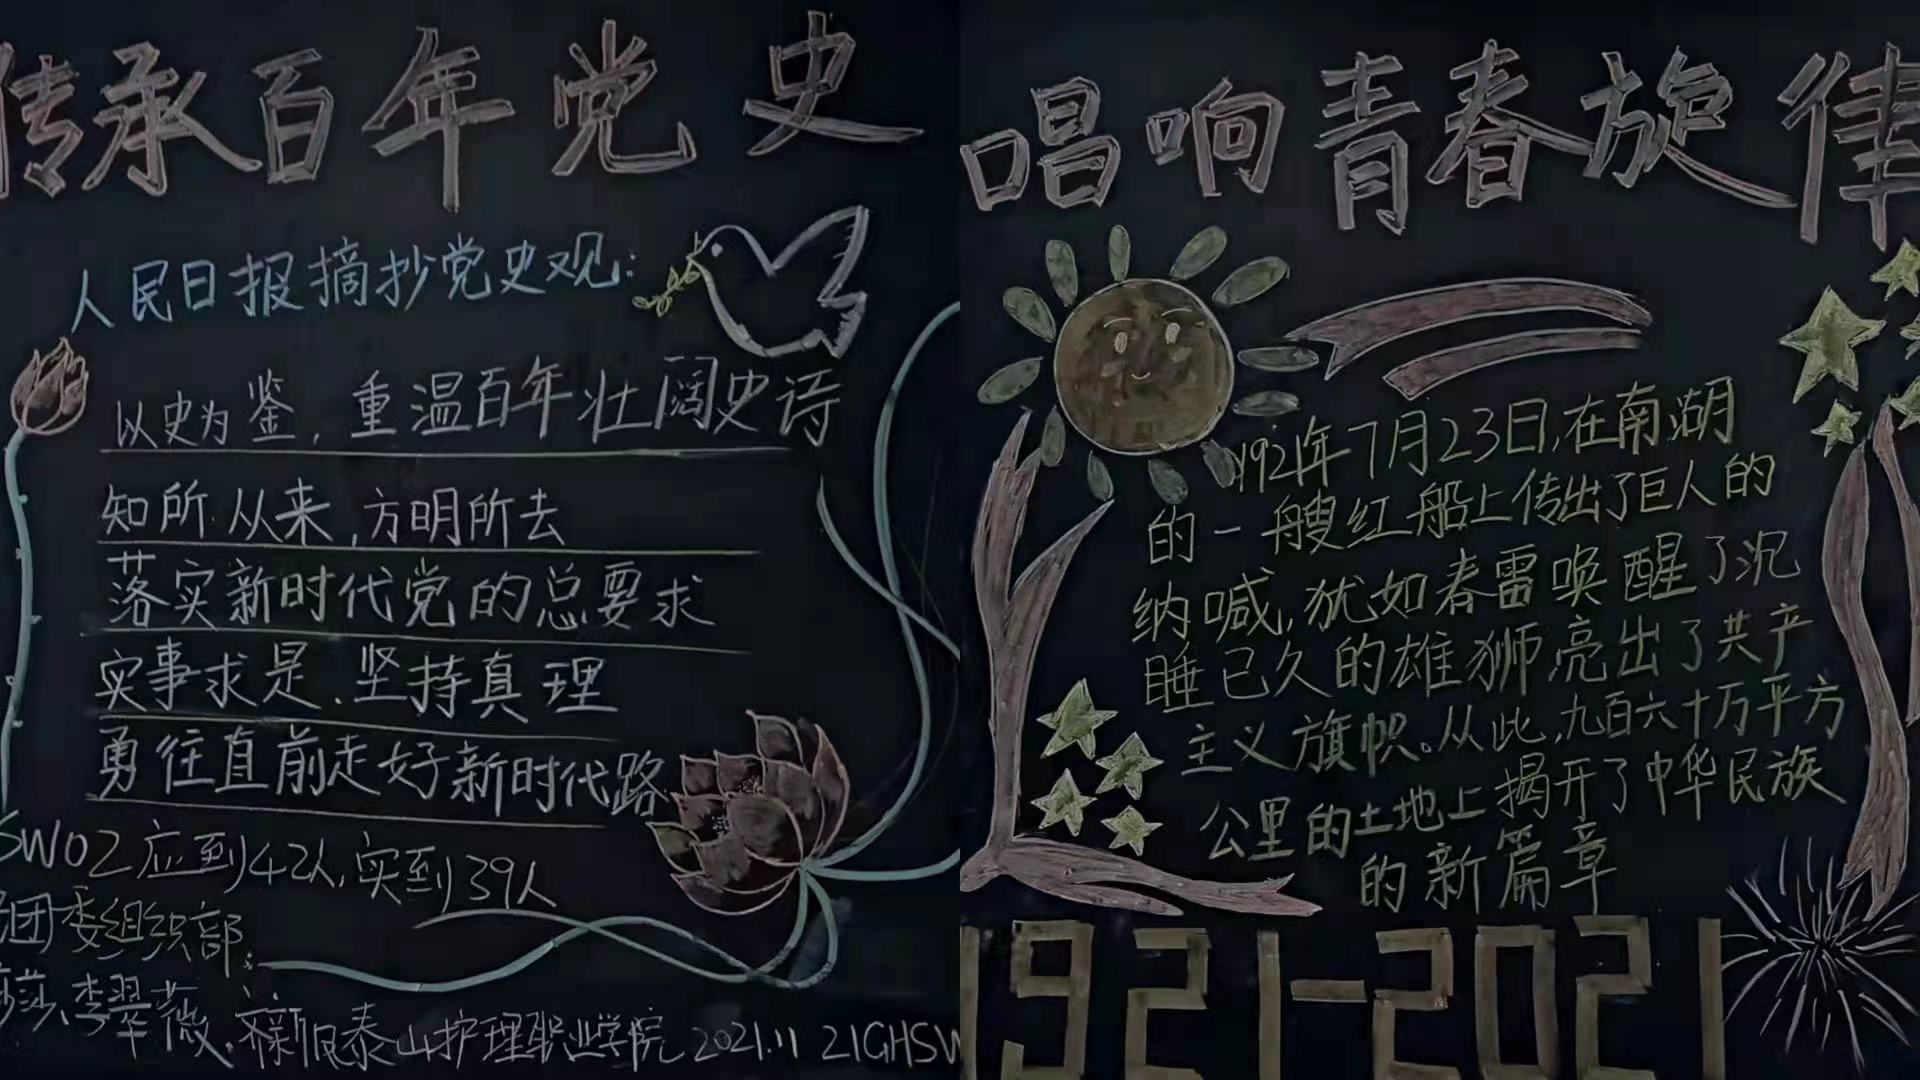 传承百年党史
人民日报摘抄党史观:
以史为鉴,重温百年壮阔史诗
知所从来,方明所去
落实新时代党的总要求
实事求是、坚持真理
勇往直前走好新时代路
SW02应到42人,实到39人
团委组织部:
莎、李翠薇、
泰山护理职业学院 2021.11 21GHSW
唱响青春旋律
1921年7月23日,在南湖
的一艘红船上传出了巨人的
纳喊,犹如春雷唤醒了沉
睡已久的雄狮亮出了共产
主义旗帜。从此,九百六十万平方
公里的土地上揭开了中华民族
的新篇章
1921-2021